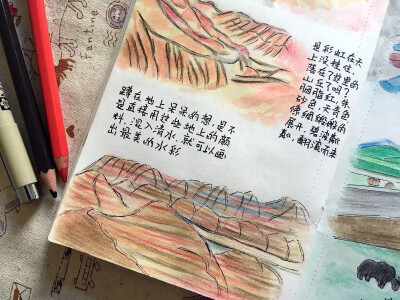 是彩虹在天
上没挂住,
落在了里的
山丘了吗?
胭脂红、朱
砂色、天青色
像绸缎般的
展开,碧波
翻滚而来
蹲在地上呆呆的想,是不
是直接用这些地上的颜
料,混入清水,就可以画
出最美的水彩
fantine